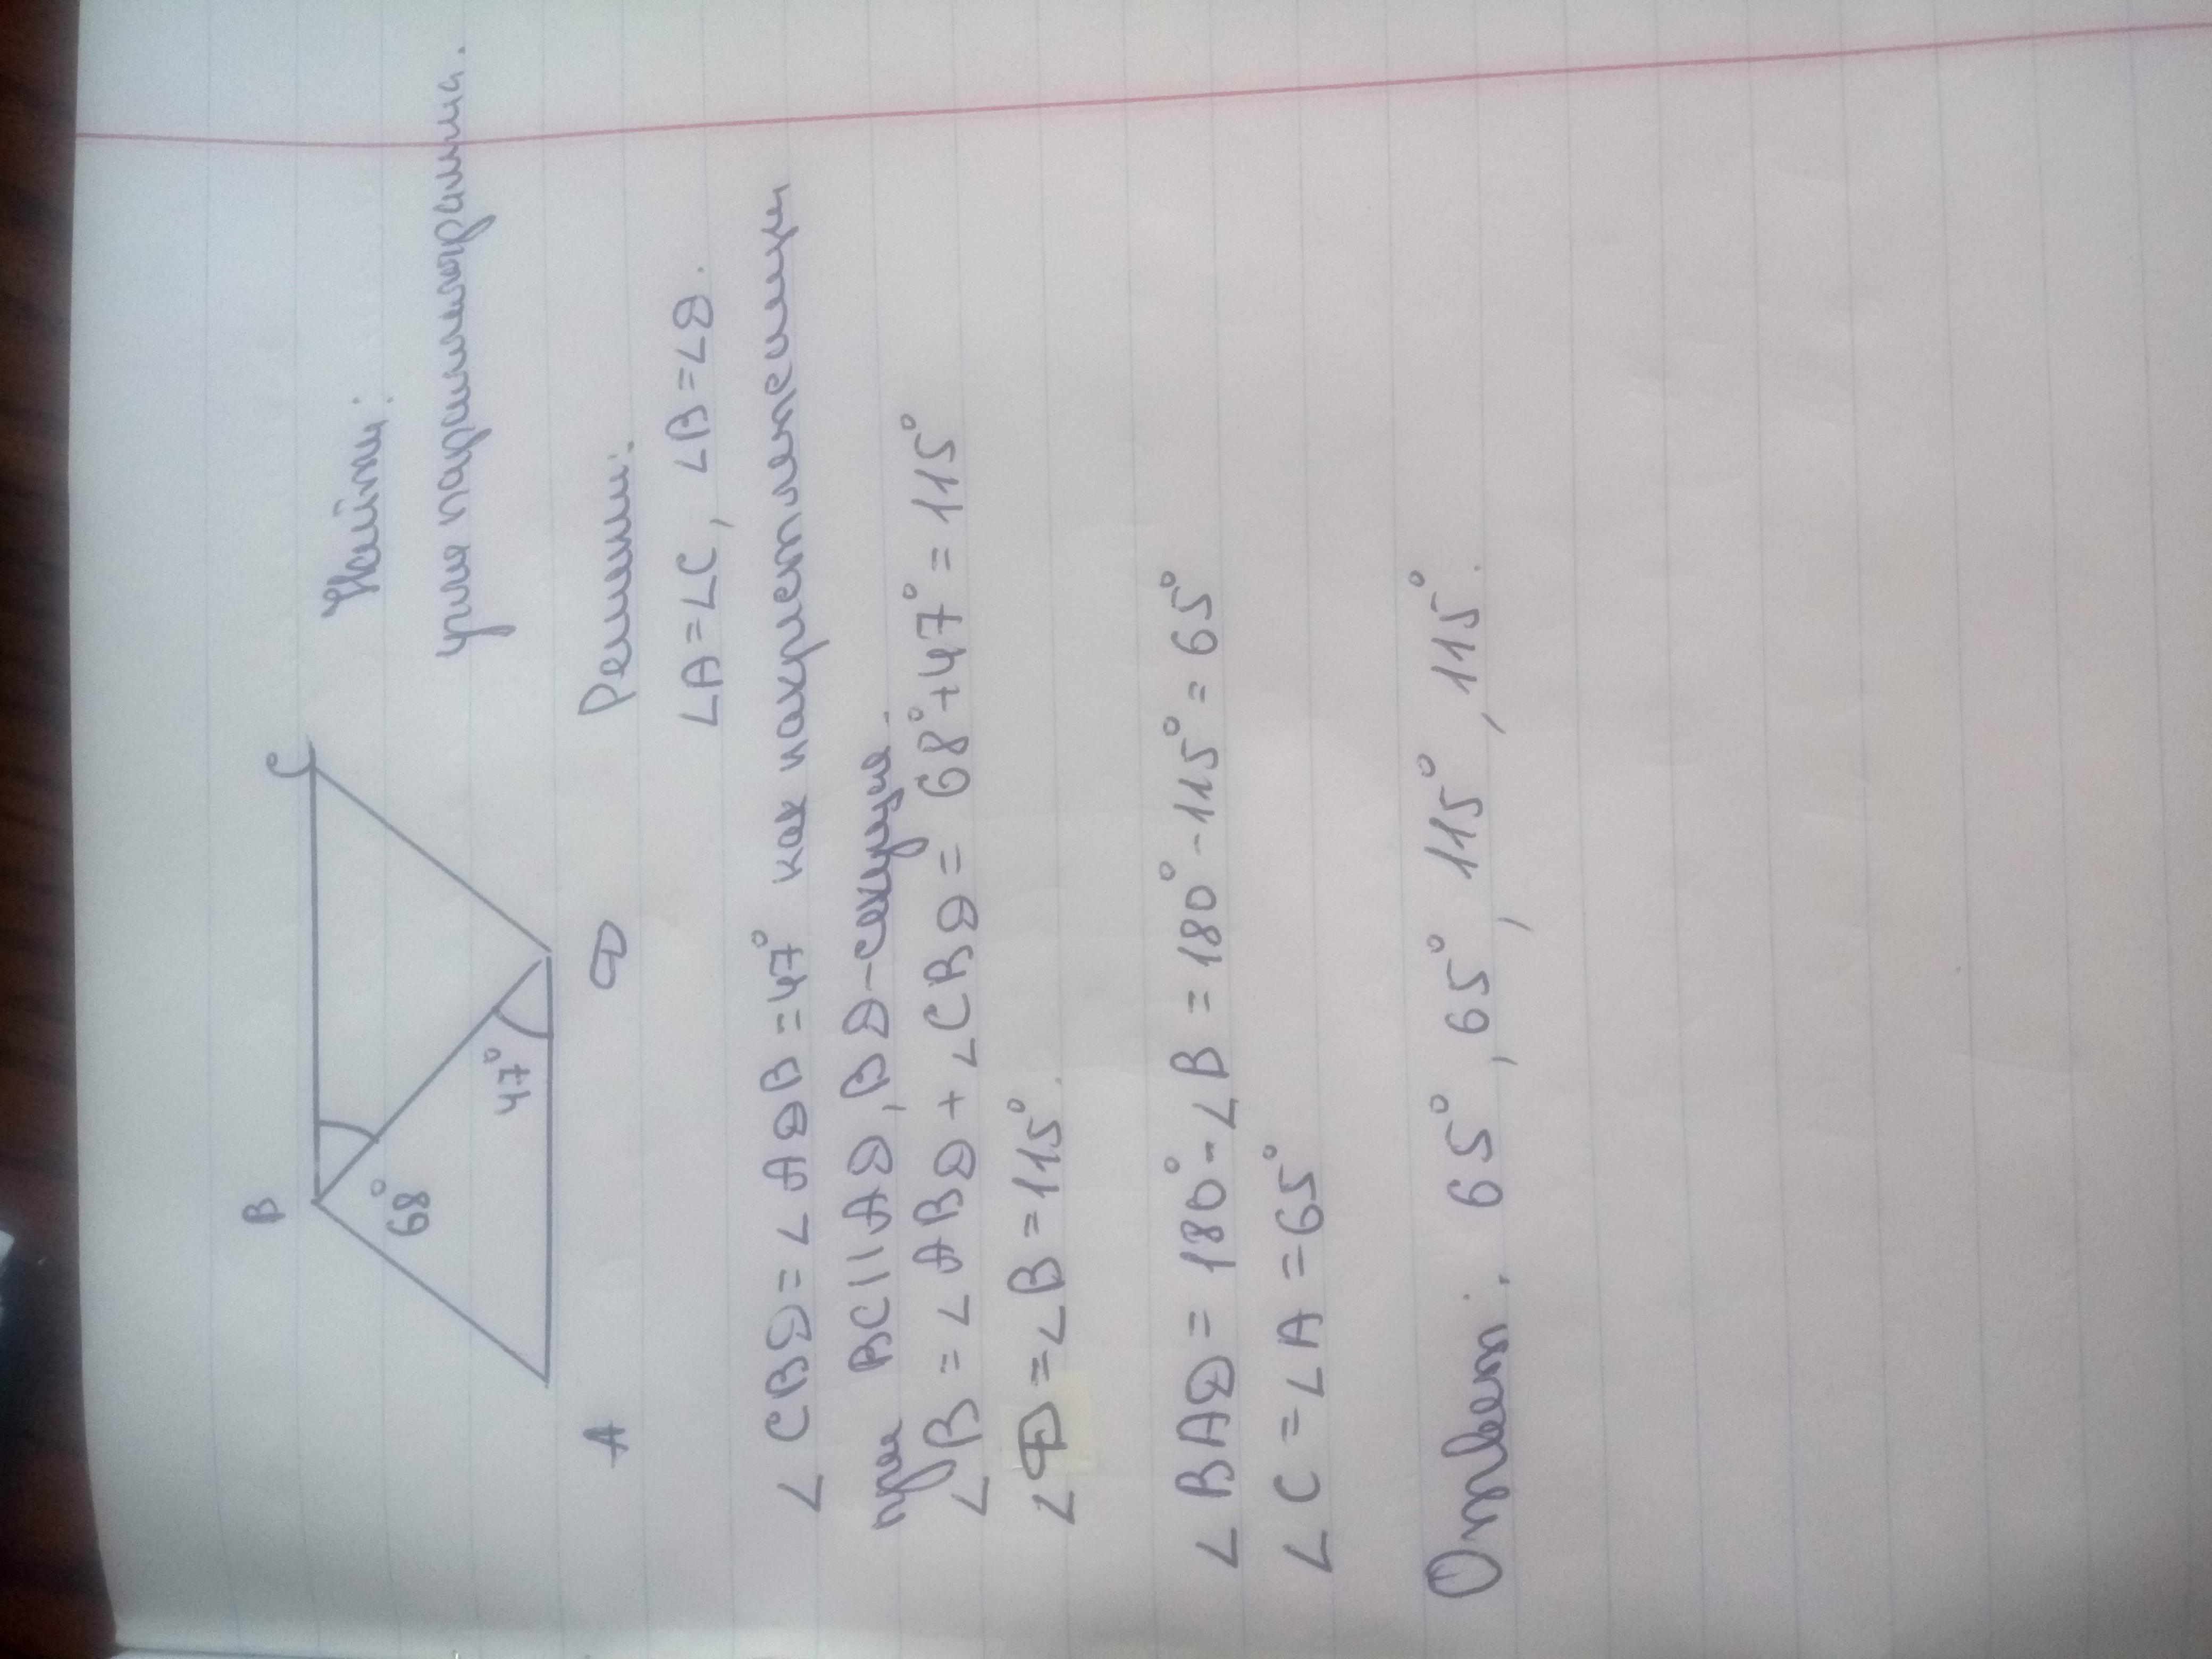 B
C
68°
47°
A
D
Найти:
углы параллелограмма.
Решение:
∠A=∠C, ∠B=∠D.
∠CBD=∠ADB=47° как накрестлежащи
при BC||AD, BD-секущая.
∠B=∠ABD+∠CBD=68°+47°=115°
∠D=∠B=115°.
∠BAD=180°-∠B=180°-115°=65°
∠C=∠A=65°
Ответ: 65°, 65°, 115°, 115°.